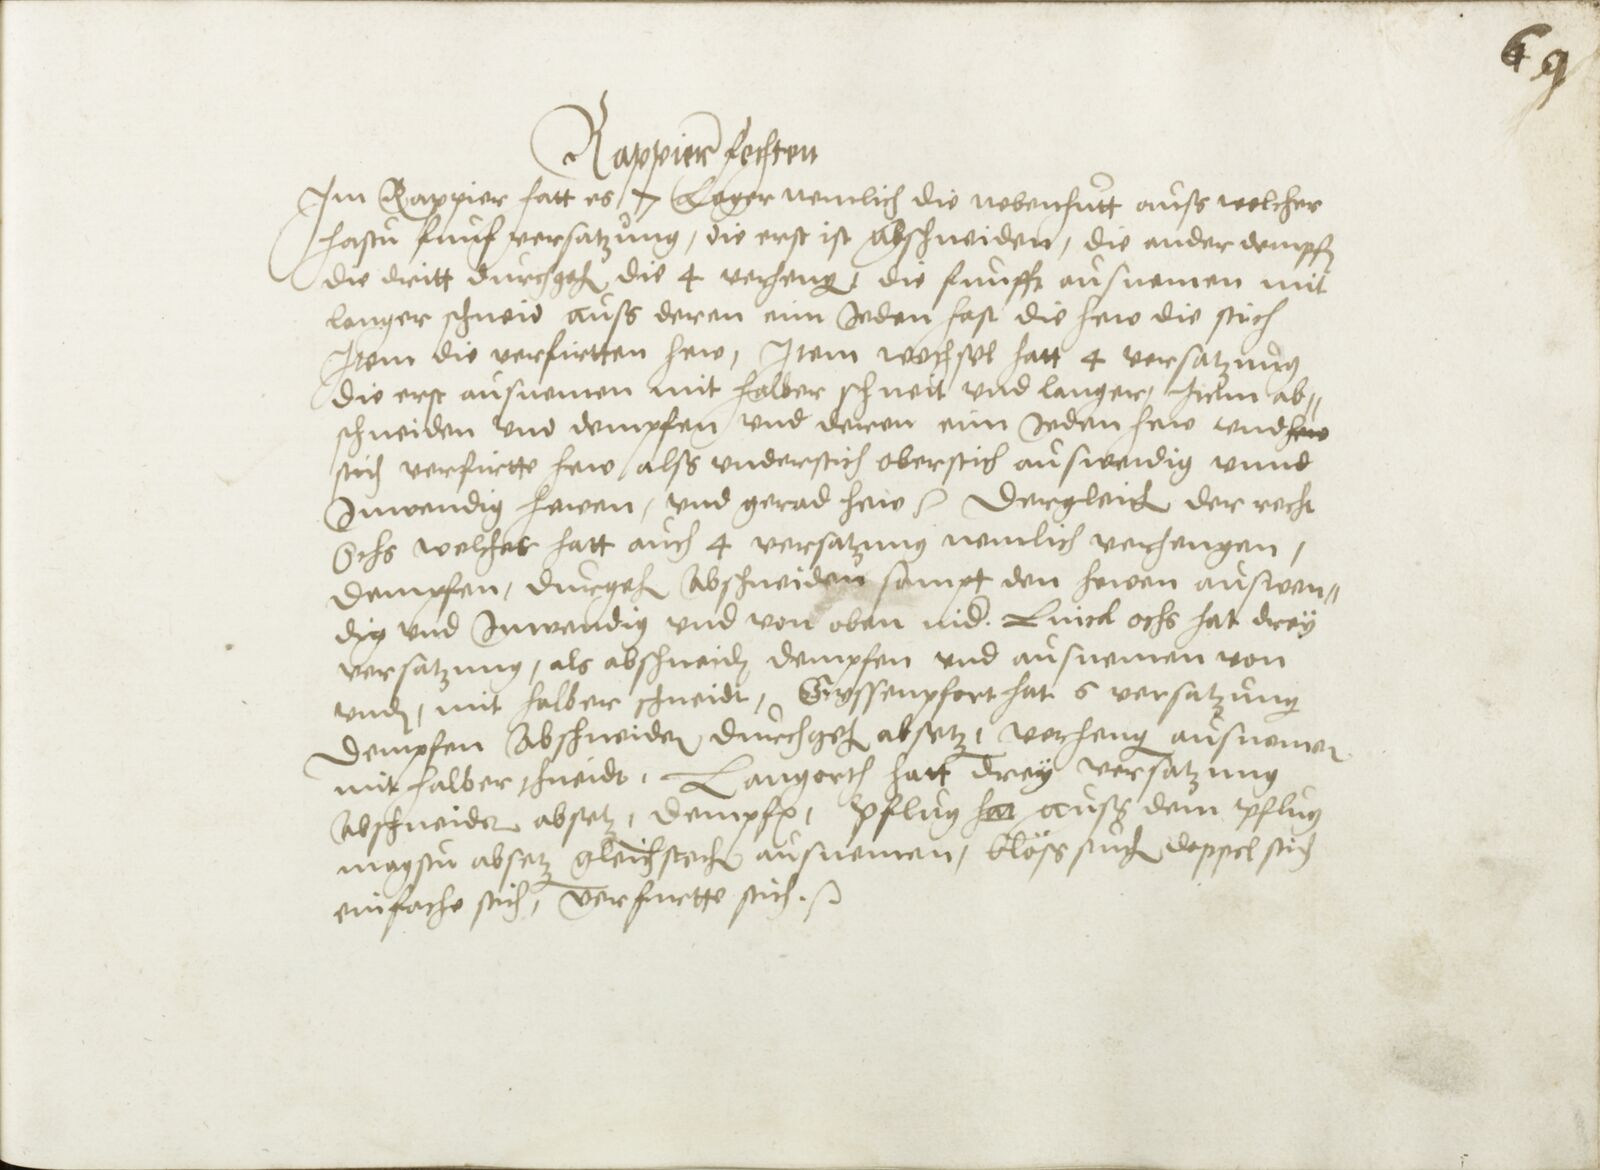 69
Rappier fechten
Im Rappier hatt es 7 Leger nemlich die nebenhutt auß welcher
hastu funf versatzung, die erst ist abschneiden, die ander dempffn
die dritt durchgehn die 4 verheng, die funfft ausnemen mit
langer schneid auß deren eim Jeden hast die hew die stich
Item die verfurtten hew, Item wechsel hatt 4 versatzung
die erst ausnemen mit halber schneit vnd langer, Item ab„
schneiden vnd dempfen vnd deren eim Jeden hew vnd hew
stich verfurtte hew alß vnderstich oberstich auswendig vnnd
Inwendig hewen, vnd gerad hew Dergleich der recht
Ochs welcher hatt auch 4 versatzung nemlich verhengen,
Dempfen, durgehn Abschneiden sampt den hewen auswen„
dig vnd Inwendig vnd von oben nid. Linck ochs hat dreÿ
versatzung, als abschneidn dempfen vnd ausnemen von
vndn, mit halber schneidt, Eyssenpfort hat 6 versatzung
Dempfen Abschneiden durchgehn absetz, verheng ausnemen
mit halber schneidt, Langorth hatt dreÿ versatzung
Abschneiden absetz, dempfn, Pflug hat auß dem Pflug
magstu absetz gleichstechn ausnemen, blöß suchn doppel stich
einfache stich, verfurtte stich.